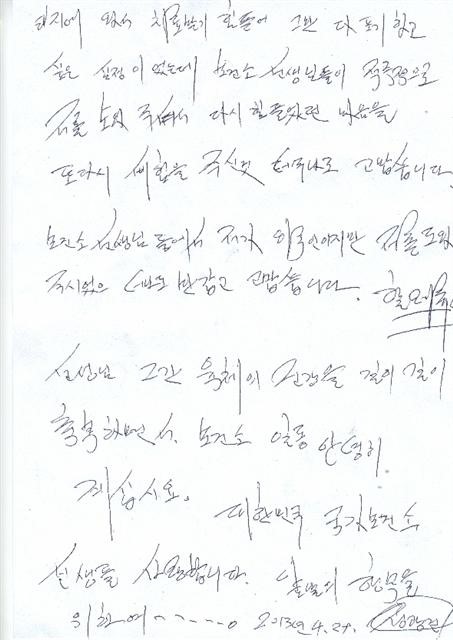 타지에 와서 치료받기 힘들어 그만 다 포기하고
싶은 심정이 었는데 보건소 선생님들이 적극적으로
저를 도와 주셔서 다시 힘들었던 마음을
또다시 새힘을 주신것 너무나도 고맙습니다.
보건소 선생님 들에서 제가 외국인이지만 저를 도와
주시었으 너무도 반갑고 고맙습니다.
선생님 그간 육체의 건강을 길이 길이
축복하면서. 보건소 일동 안녕히
계십시요.
대한민국 국가보건소
선생을 사랑합니다. 앞날의 행복을
위하여-----o 2013년 4. 28.